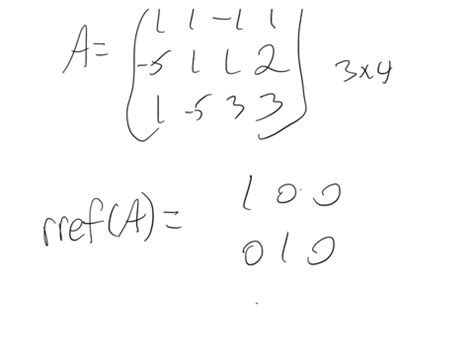 1 1 -1 1
A= -5 1 1 2 3x4
1 -5 3 3
1 0 0
rref(A)=
0 1 0